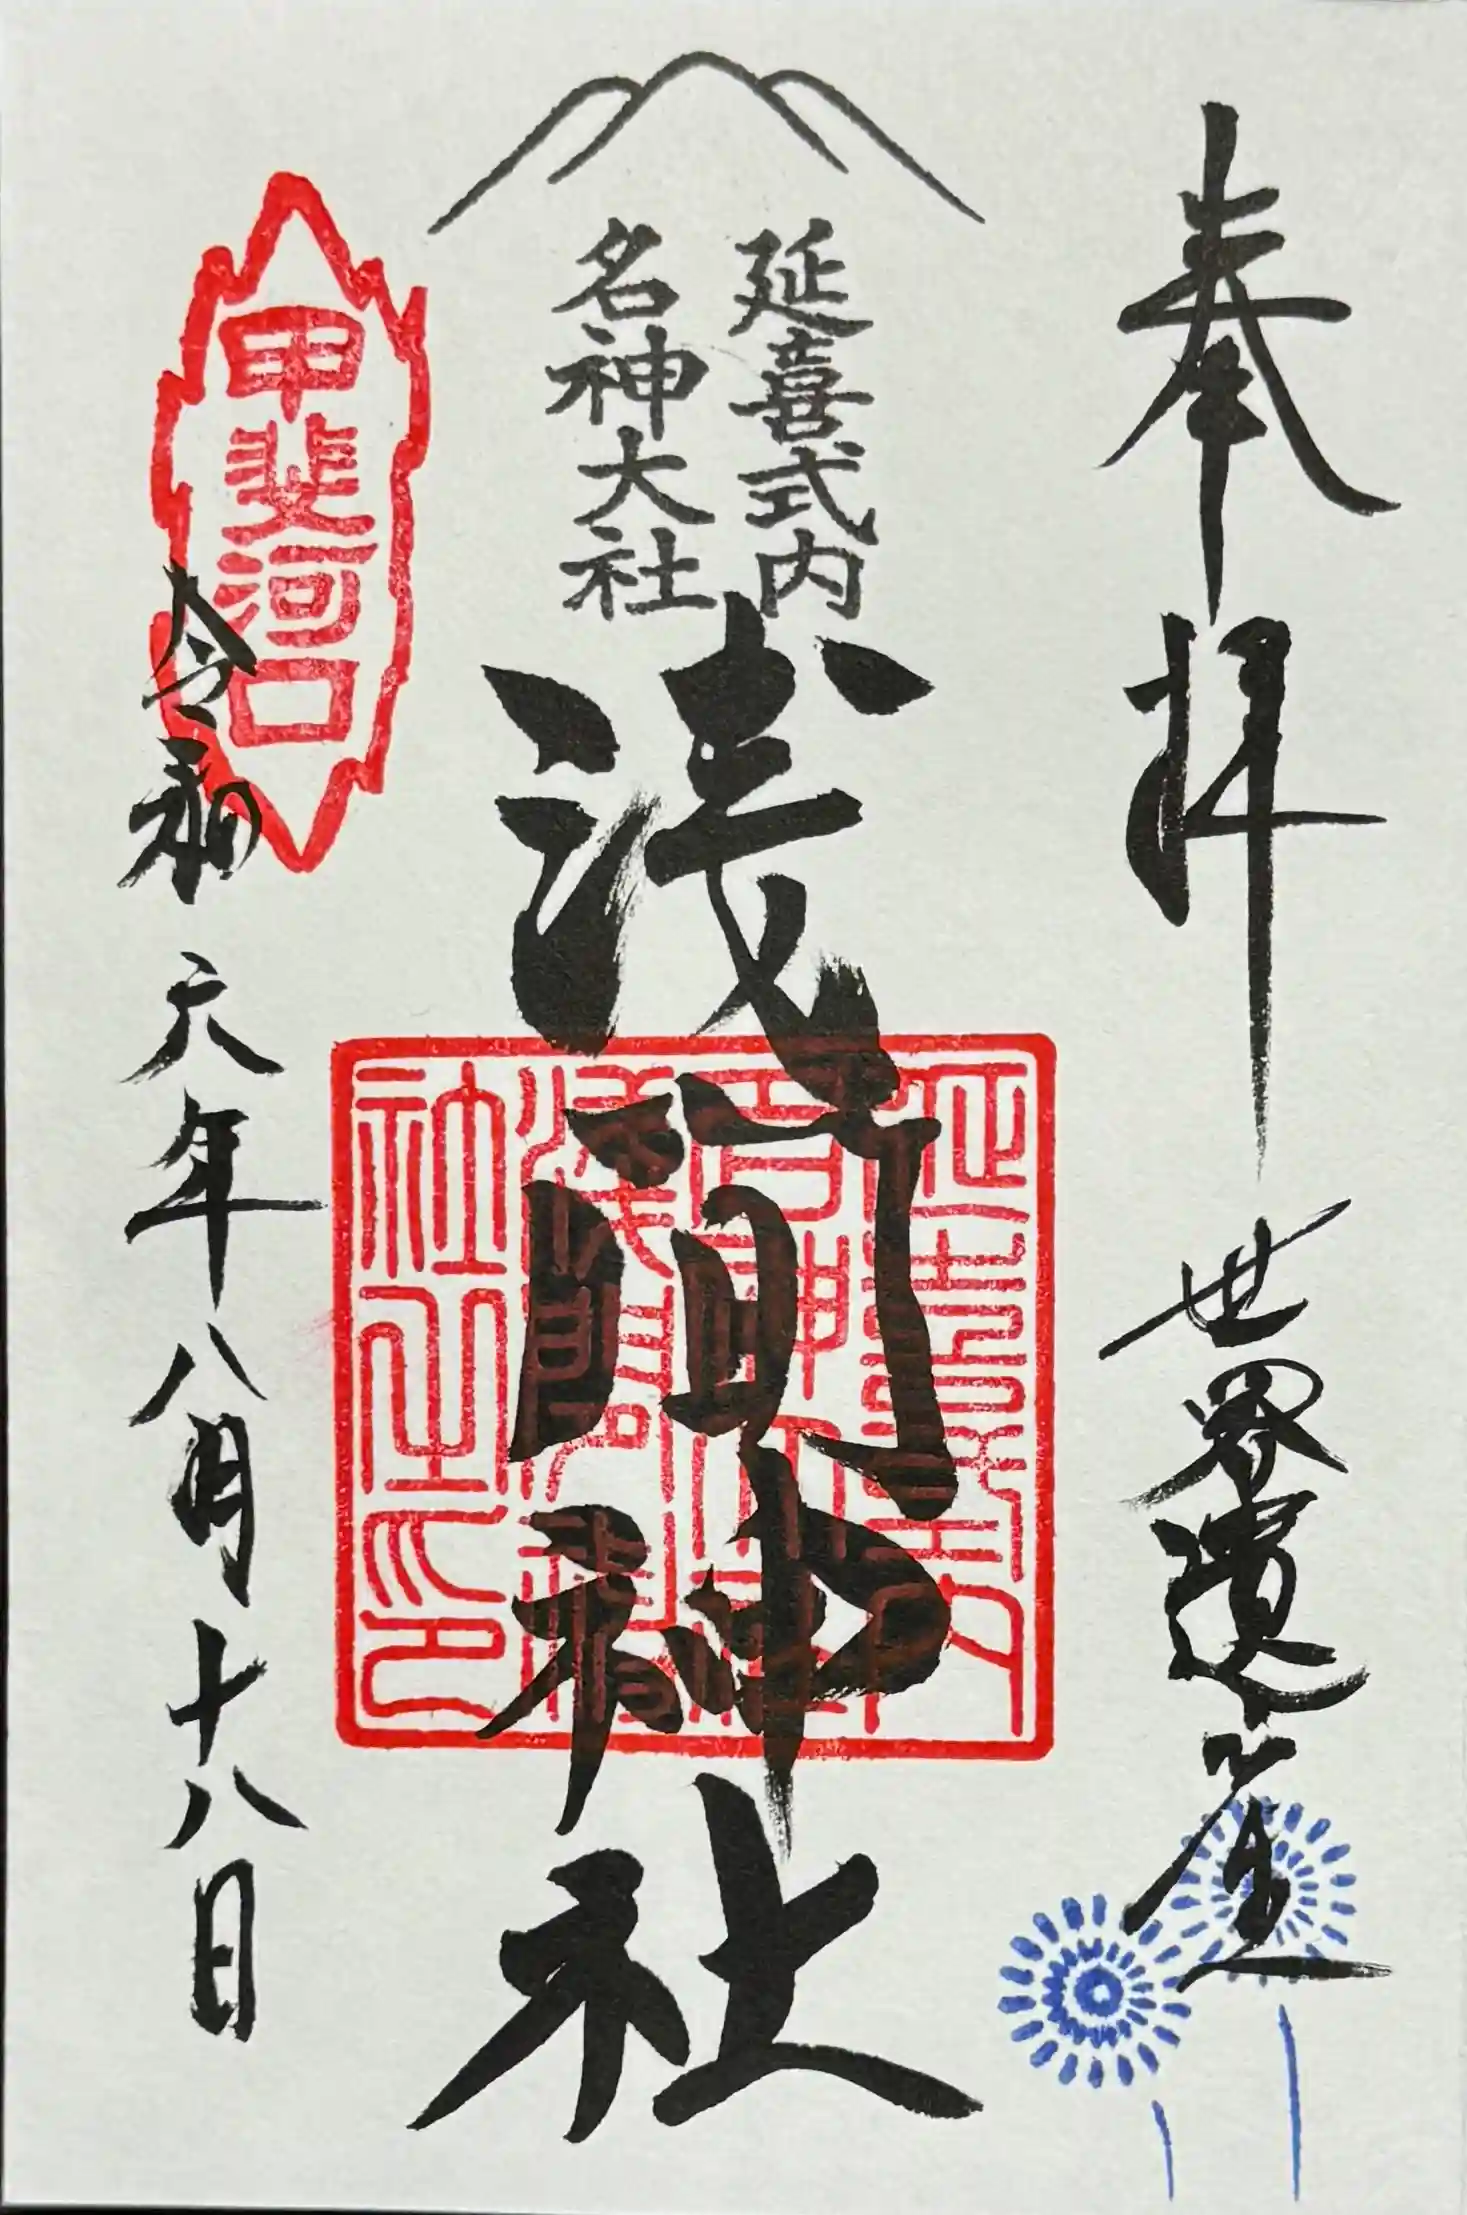 奉拝
世界遺産
延喜式内
名神大社
浅間神社
延喜式内
名神大社
浅間神
社之印
甲斐河口
令和六年八月十八日